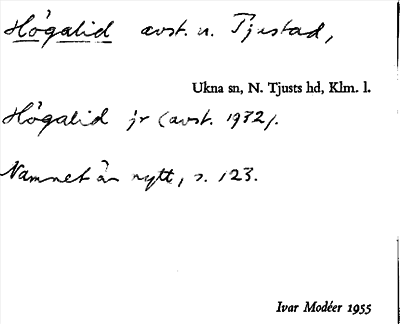 Högalid avst. u. Tjustad,
Ukna sn, N. Tjusts hd, Klm. l.
Högalid jr (avst. 1932).
Namnet är nytt, s. 123.
Ivar Modéer 1955